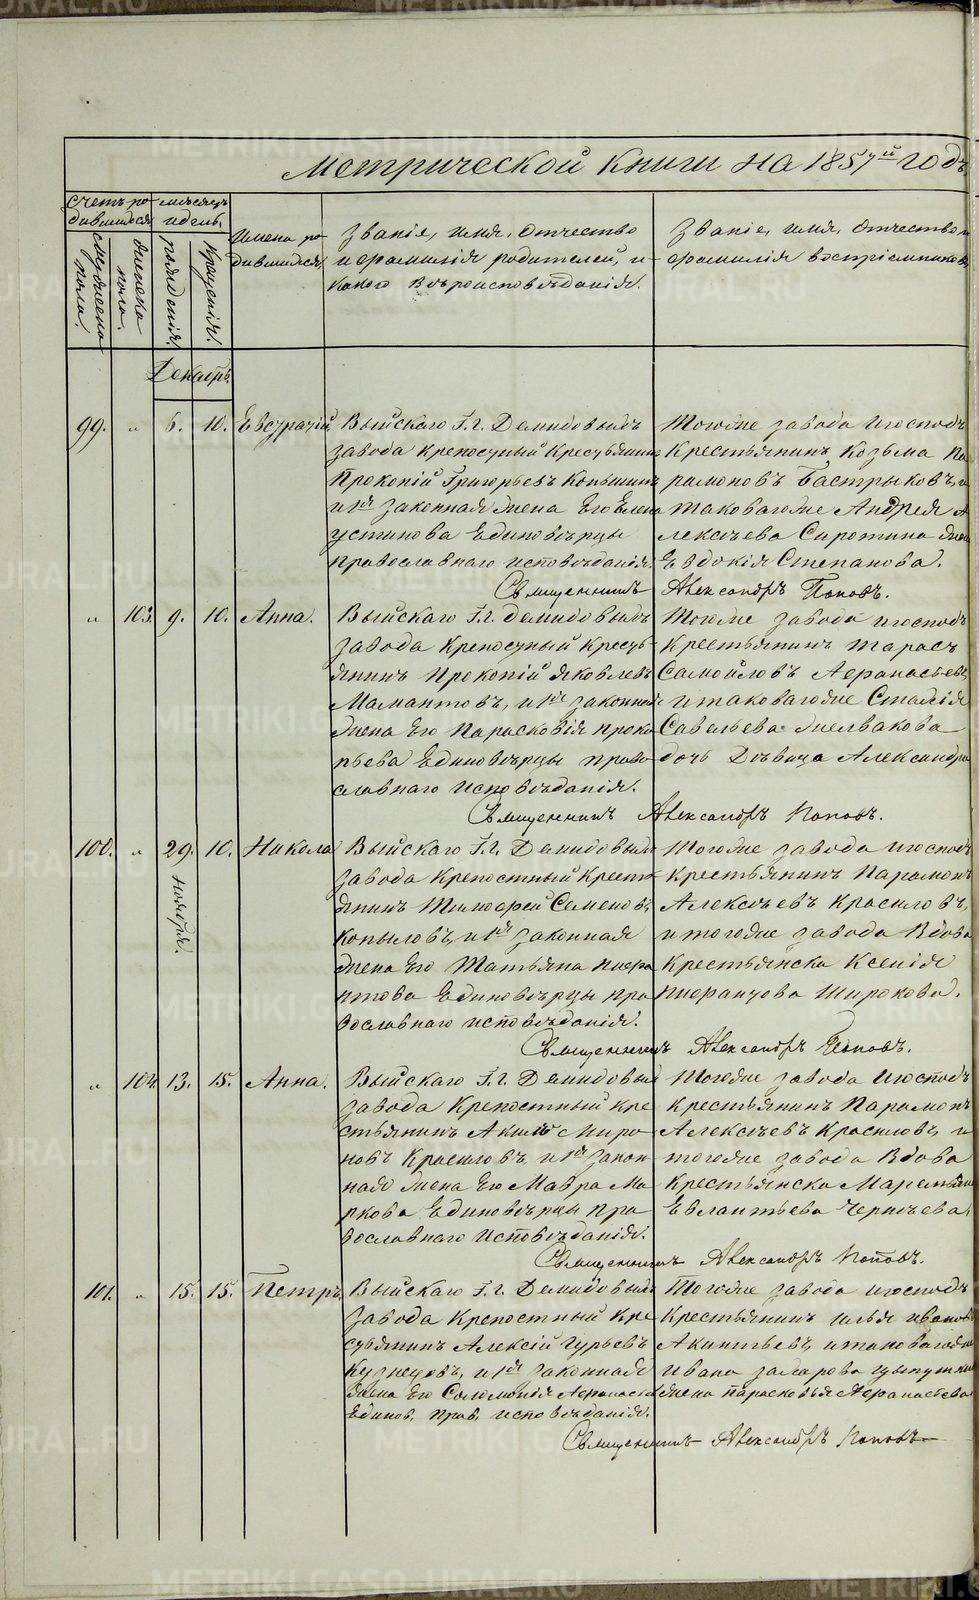 Метрической книги на 1857й годъ
Счетъ родившихся
мужеска пола.
женска пола.
месяцъ и день.
рожденія.
крещенія.
Имена родившихся.
Званіе, имя, отчество
и фамилія родителей, и
какого вѣроисповѣданія.
Званіе, имя, отчество и
фамилія воспріемниковъ
Декабрь
99. „ 6. 10. Евстратій
Выйскаго Г.г. Демидовыхъ
завода крепостный Крестьянинъ
Прокопій Григорьевъ Копыловъ
и 1я законная жена Его Елена
Устинова Единовѣрцы
православнаго исповѣданія.
Тогоже завода и господъ
Крестьянинъ Козьма Па
рамоновъ Бастрыковъ, и
таковагоже Андрея А
лексѣева Сиротина жена
Евдокія Степанова.
Священникъ Александръ Поповъ.
„ 103. 9. 10. Анна.
Выйскаго Г.г. Демидовыхъ
завода Крепостный Кресть
янинъ Прокопій Яковлевъ
Мамантовъ, и 1я законная
жена Его Парасковія Проко
пьева Единовѣрцы право
славнаго исповѣданія.
Тогоже завода и господъ
Крестьянинъ Тарасъ
Самойловъ Афанасьевъ
и таковагоже
Савельева
дочь Дѣвица Александра
Священникъ Александръ Поповъ.
100. „ 29. Ноября. 10. Никола
Выйскаго Г.г. Демидовыхъ
завода Крепостный Кресть
янинъ Тимофей Семеновъ
Копыловъ, и 1я законная
жена Его Татьяна Ниефа
нтова Единовѣрцы пра
вославнаго исповѣданія.
Тогоже завода и господъ
Крестьянинъ Парамонъ
Алексѣевъ Красиловъ,
и тогоже завода Вдова
Крестьянска Ксенія
Ниефантова Широкова.
Священникъ Александръ Поповъ.
„ 104 13. 15. Анна.
Выйскаго Г.г. Демидовыхъ
завода Крепостный Кре
стьянинъ Акимъ Миро
новъ Красиловъ, и 1я закон
ная жена Его Мавра Ма
ркова Единовѣрцы пра
вославнаго исповѣданія.
Тогоже завода и господъ
Крестьянинъ Парамонъ
Алексѣевъ Красиловъ, и
тогоже завода Вдова
Крестьянска
Евлантьева Черняева.
Священникъ Александръ Поповъ.
101. „ 15. 15. Петръ
Выйскаго Г.г. Демидовыхъ
завода Крепостный Кре
стьянинъ Алексій Гурьевъ
Кузнецовъ, и 1я законная
жена Его Соломонія Афанасьева
Единов. прав. исповѣданія.
Тогоже завода и господъ
Крестьянинъ Илья Ивановъ
Акинтьевъ, и таковагоже
Ивана Захарова
жена Парасковья Афанасьева
Священникъ Александръ Поповъ
METRIKI.GASO-URAL.RU